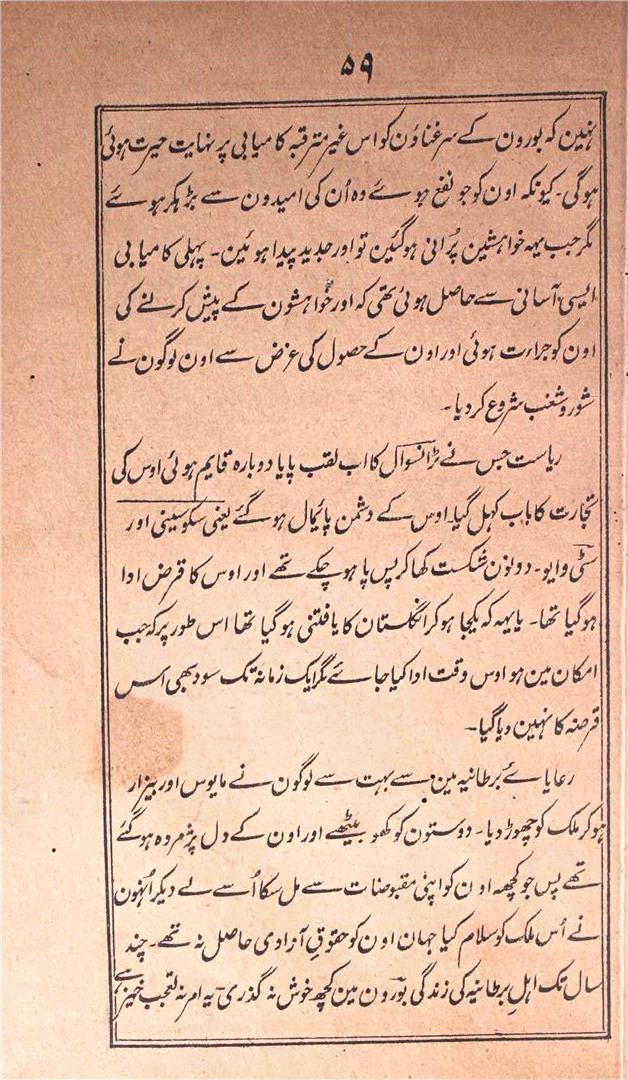 ۵۹
نہین کہ بورون کے سرغناؤن کو اس غیر مترقبہ کامیابی پر نہایت حیرت ہوئی
ہوگی۔ کیونکہ اون کو جو نفع ہوئے وہ اُن کی امیدون سے بڑہکر ہوئے
مگر جب یہہ خواہشین پُرانی ہوگئین تو اور جدید پیدا ہوئین۔ پہلی کامیابی
ایسی آسانی سے حاصل ہوئی تھی کہ اور خواہشون کے پیش کرنے کی
اون کو جراءت ہوئی اور اون کے حصول کی غرض سے اون لوگون نے
شور و شغب شروع کردیا۔
ریاست جس نے ٹرانسوال کا اب لقب پایا دوبارہ قایم ہوئی اوس کی
تجارت کا باب کہل گیا۔ اوس کے دشمن پائمال ہوگئے یعنی سکوسینی اور
سٹی وایو۔ دونون شکست کھاکر پس پا ہوچکے تھے اور اوس کا قرض ادا
ہوگیا تھا۔ یا یہہ کہ یکجا ہوکر انگلستان کا یافتنی ہوگیا تھا اس طور پر کہ جب
امکان مین ہو اوس وقت ادا کیا جائے مگر ایک زمانہ تک سود بھی اس
قرضہ کا نہین دیا گیا۔
رعایائے برطانیہ مین سے بہت سے لوگون نے مایوس اور بیزار
ہوکر ملک کو چھوڑ دیا۔ دوستون کو کھو بیٹھے اور اون کے دل پژمردہ ہوگئے
تھے پس جو کچھہ اون کو اپنی مقبوضات سے مل سکا اُسے لے دیکر اُنہون
نے اُس ملک کو سلام کیا جہان اون کو حقوقِ آزادی حاصل نہ تھے۔ چند
سال تک اہلِ برطانیہ کی زندگی بورون مین کچھ خوش نہ گذری یہ امر نہ تعجب خیز ہے